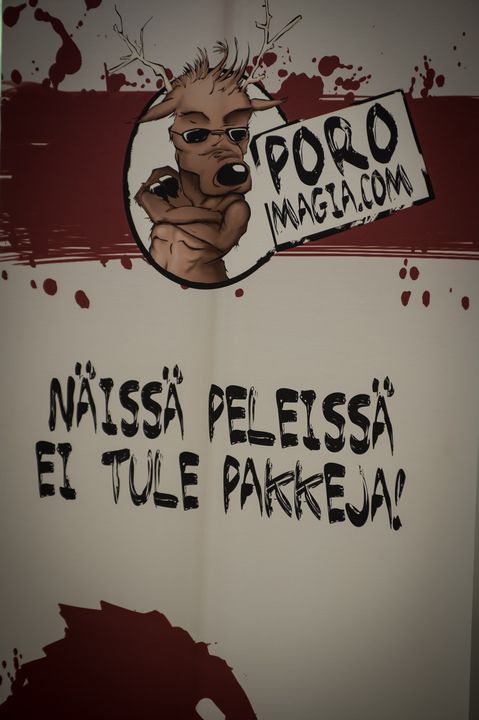 PORO
MAGIA.COM
NÄISSÄ PELEISSÄ
EI TULE PAKKEJA!